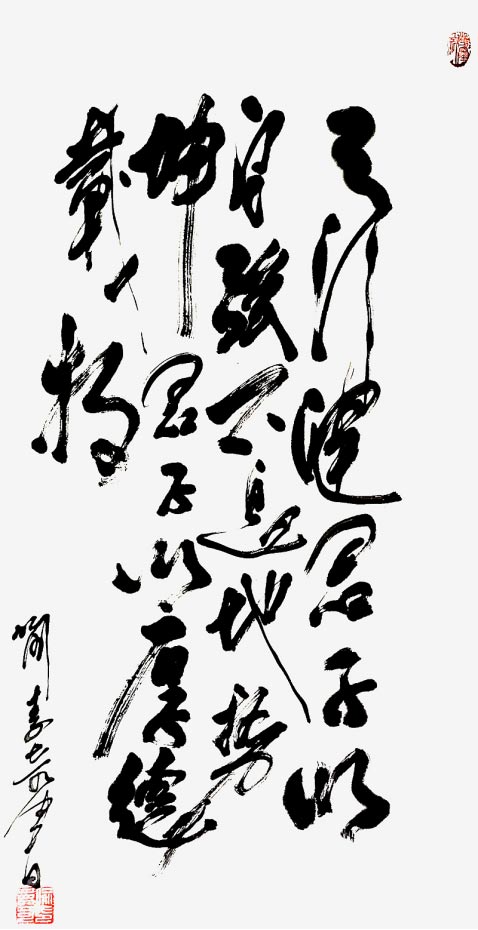 天行健君子以
自强不息地势
坤君子以厚德
載物